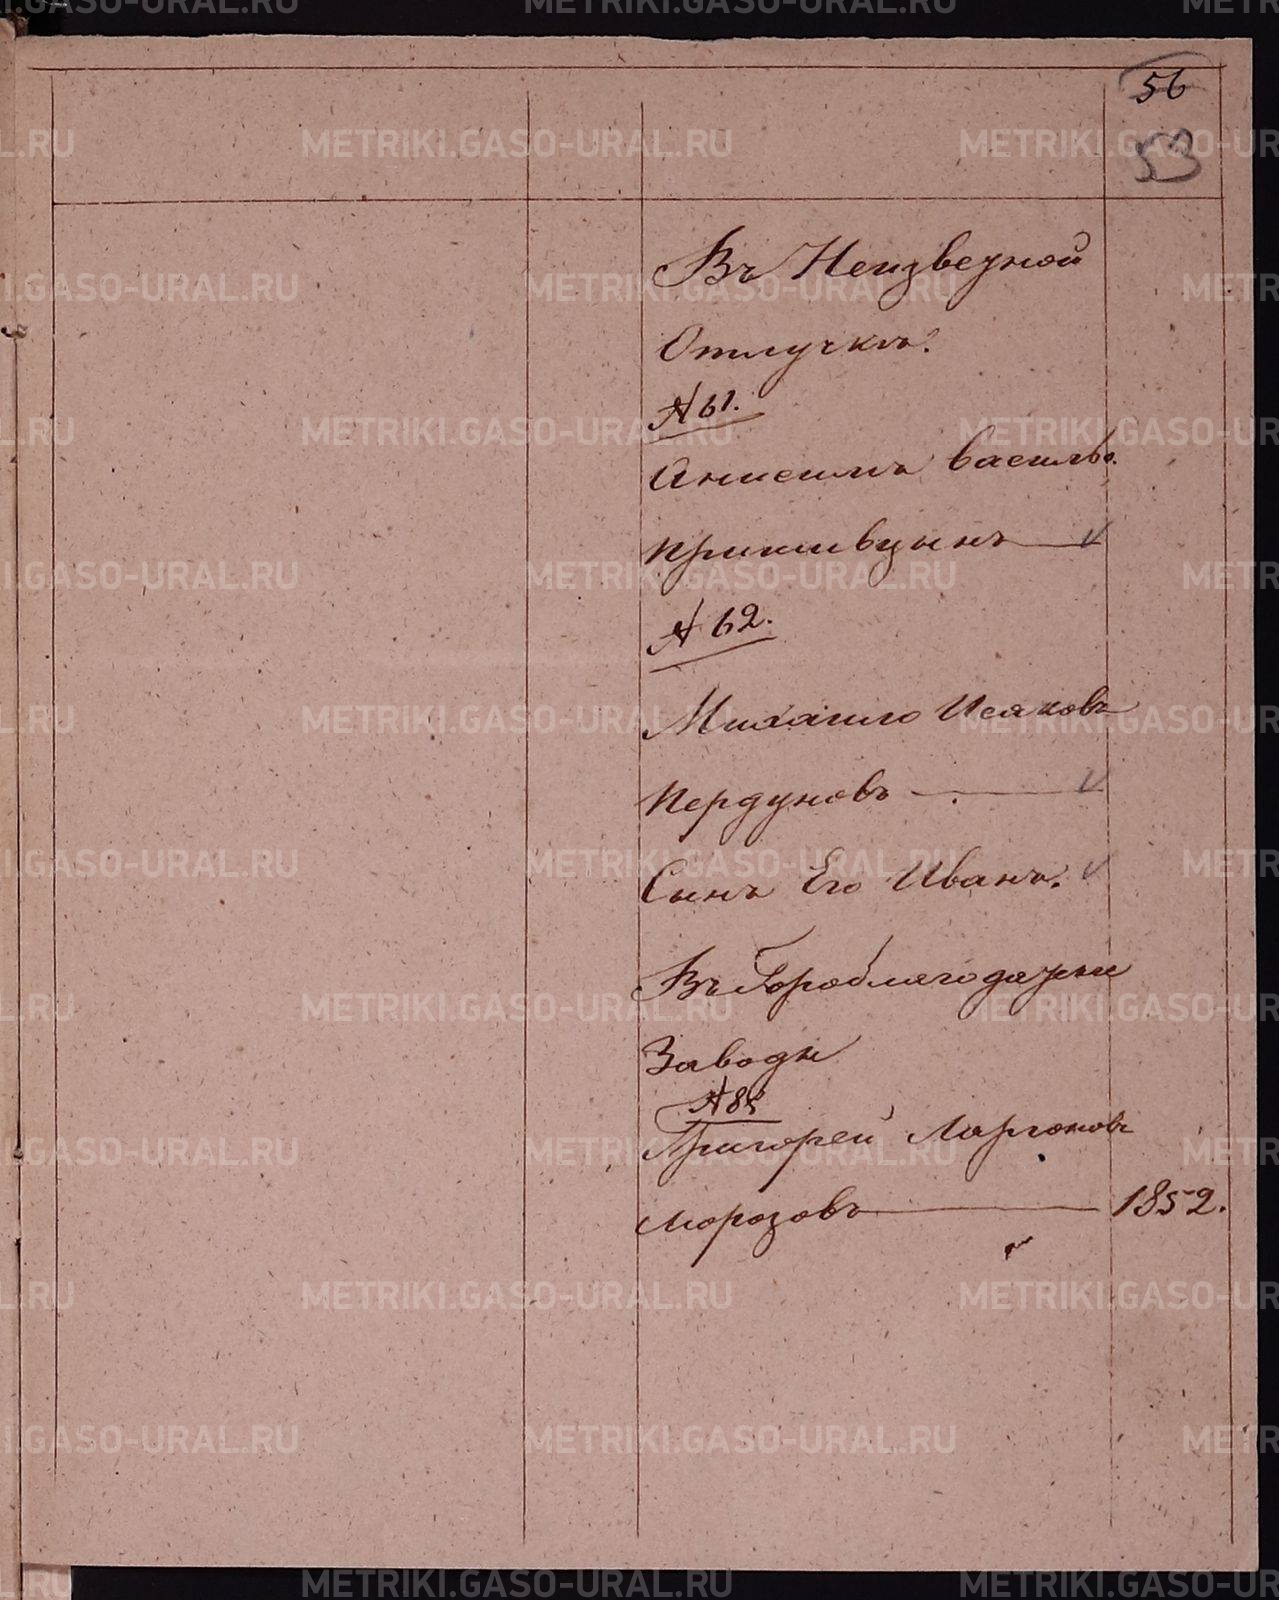 56
53
Въ Неизвезной
Отлучкѣ.
№ 61.
Анисимъ васильв.
Прикивцынъ
№ 62.
Михаило Исаковъ
Пердуновъ
Сынъ Его Иванъ.
Въ Гороблагодазкие
Заводы
Григорей Ларионовъ
Морозовъ 1852.
METRIKI.GASO-URAL.RU